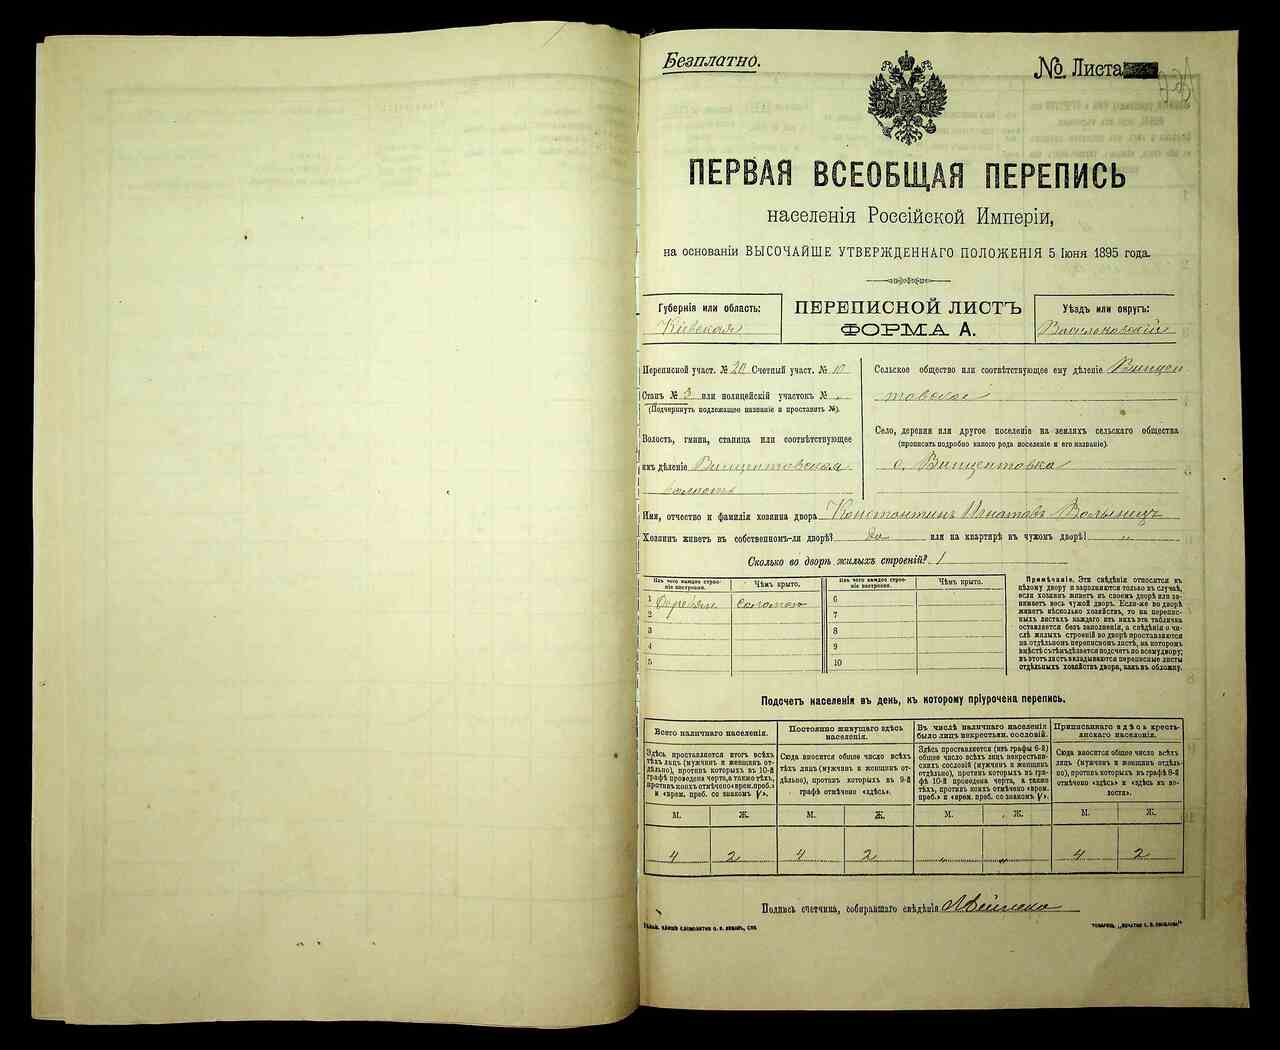 Безплатно.
№ Листа
ПЕРВАЯ ВСЕОБЩАЯ ПЕРЕПИСЬ
населенія Россійской Имперіи,
на основаніи ВЫСОЧАЙШЕ УТВЕРЖДЕННАГО ПОЛОЖЕНІЯ 5 Іюня 1895 года.
Губернія или область:
Кіевская
ПЕРЕПИСНОЙ ЛИСТЪ
ФОРМА А.
Уѣздъ или округъ:
Васильковскій
Переписной участ. № 20 Счетный участ. № 10
Станъ № 3 или полицейскій участокъ № „
(Подчеркнуть подлежащее названіе и проставить №).
Волость, гмина, станица или соотвѣтствующее
имъ дѣленіе Винцентовская
волость
Сельское общество или соотвѣтствующее ему дѣленіе Винцен
товское
Село, деревня или другое поселеніе на земляхъ сельскаго общества
(прописать подробно какого рода поселеніе и его названіе).
с. Винцентовка
Имя, отчество и фамилія хозяина двора Константинъ Игнатовъ Волынецъ
Хозяинъ живетъ въ собственномъ-ли дворѣ? да или на квартирѣ въ чужомъ дворѣ? „
Сколько во дворѣ жилыхъ строеній? 1
Изъ чего каждое строе-
ніе построено.
Чѣмъ крыто.
Изъ чего каждое строе-
ніе построено.
Чѣмъ крыто.
1 Деревян. соломою 6
2 7
3 8
4 9
5 10
Примѣчаніе. Эти свѣдѣнія относятся къ
цѣлому двору и заполняются только въ случаѣ,
если хозяинъ живетъ въ своемъ дворѣ или за-
нимаетъ весь чужой дворъ. Если-же во дворѣ
живетъ нѣсколько хозяйствъ, то на перепис-
ныхъ листахъ каждаго изъ нихъ эта табличка
оставляется безъ заполненія, а свѣдѣнія о чи-
слѣ жилыхъ строеній во дворѣ проставляются
на отдѣльномъ переписномъ листѣ, на которомъ
вмѣстѣ съ тѣмъ дѣлается подсчетъ по всему двору;
въ этотъ листъ вкладываются переписные листы
отдѣльныхъ хозяйствъ двора, какъ въ обложку.
Подсчетъ населенія въ день, къ которому пріурочена перепись.
Всего наличнаго населенія.
Постоянно живущаго здѣсь
населенія.
Въ числѣ наличнаго населенія
было лицъ некрестьян. сословій.
Приписаннаго здѣсь кресть-
янскаго населенія.
Здѣсь проставляется итогъ всѣхъ
тѣхъ лицъ (мужчинъ и женщинъ от-
дѣльно), противъ которыхъ въ 10-й
графѣ проведена черта, а также тѣхъ,
противъ коихъ отмѣчено «врем. преб.»
и «врем. преб. со знакомъ V».
Сюда вносится общее число всѣхъ
тѣхъ лицъ (мужчинъ и женщинъ от-
дѣльно), противъ которыхъ въ 9-й
графѣ отмѣчено «здѣсь».
Здѣсь проставляется (изъ графы 6-й)
общее число всѣхъ лицъ некрестьян-
скихъ сословій (мужчинъ и женщинъ
отдѣльно), противъ которыхъ въ гра-
фѣ 10-й проведена черта, а также
тѣхъ, противъ коихъ отмѣчено «врем.
преб.» и «врем. преб. со знакомъ V».
Сюда вносится общее число всѣхъ
лицъ (мужчинъ и женщинъ отдѣль-
но), противъ которыхъ въ графѣ 8-й
отмѣчено «здѣсь» и «здѣсь въ во-
лости».
М. Ж. М. Ж. М. Ж. М. Ж.
4 2 4 2 „ „ 4 2
Подпись счетчика, собиравшаго свѣдѣнія